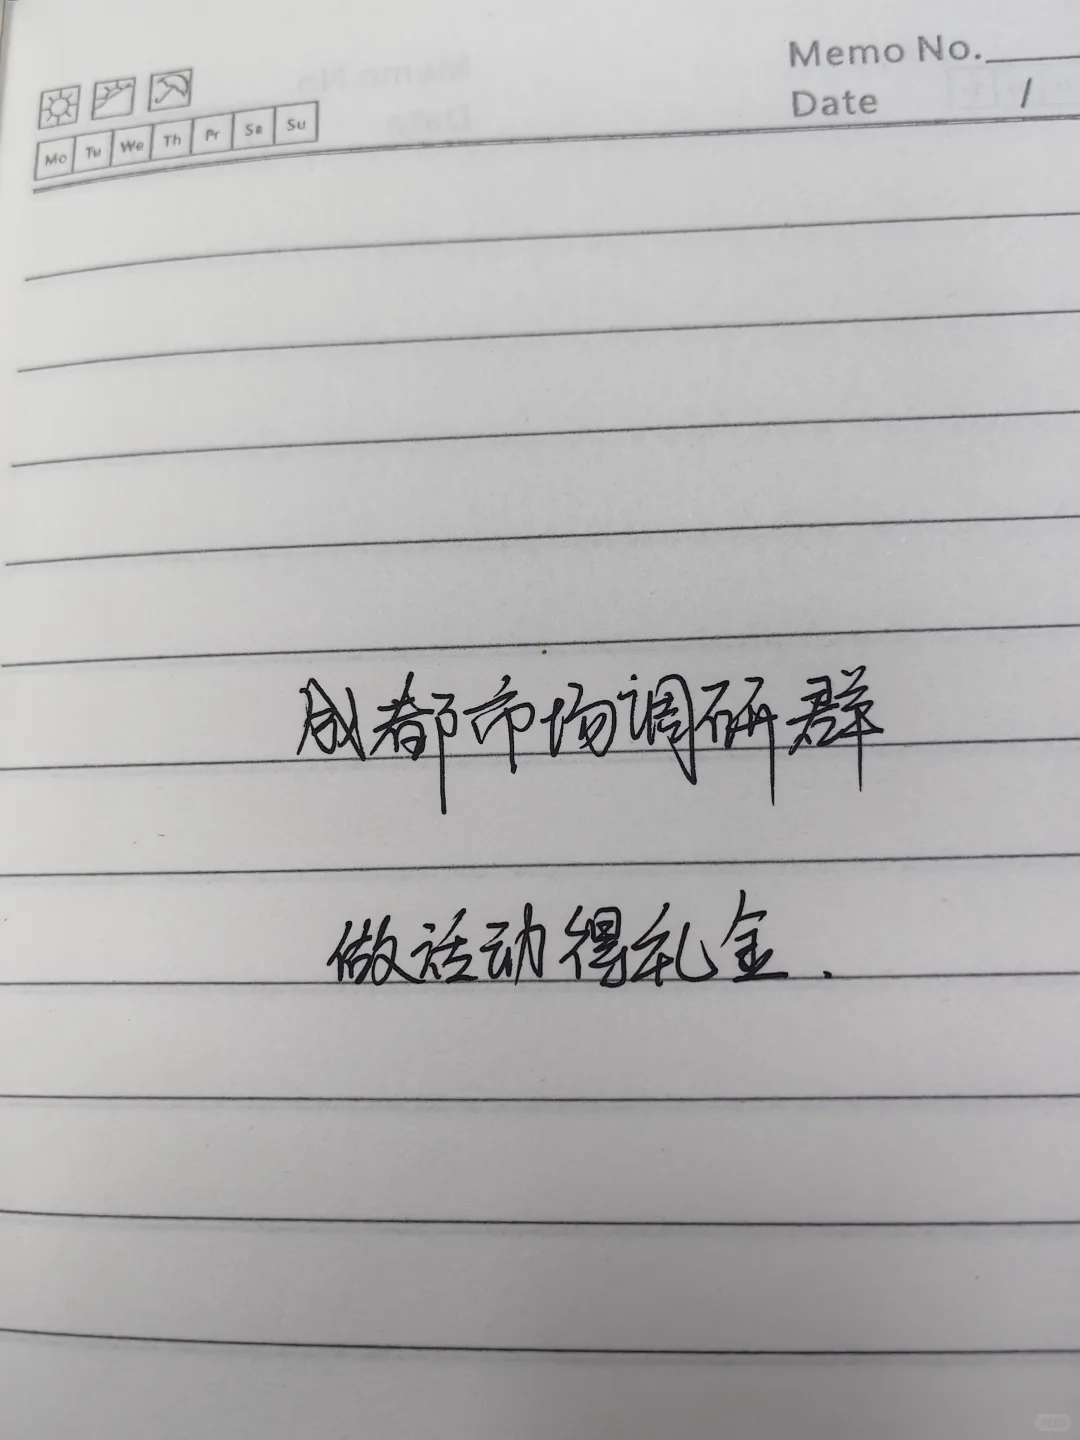 Memo No.
Date /
Mo Tu We Th Fr Sa Su
成都市场调研群
做活动得礼金.